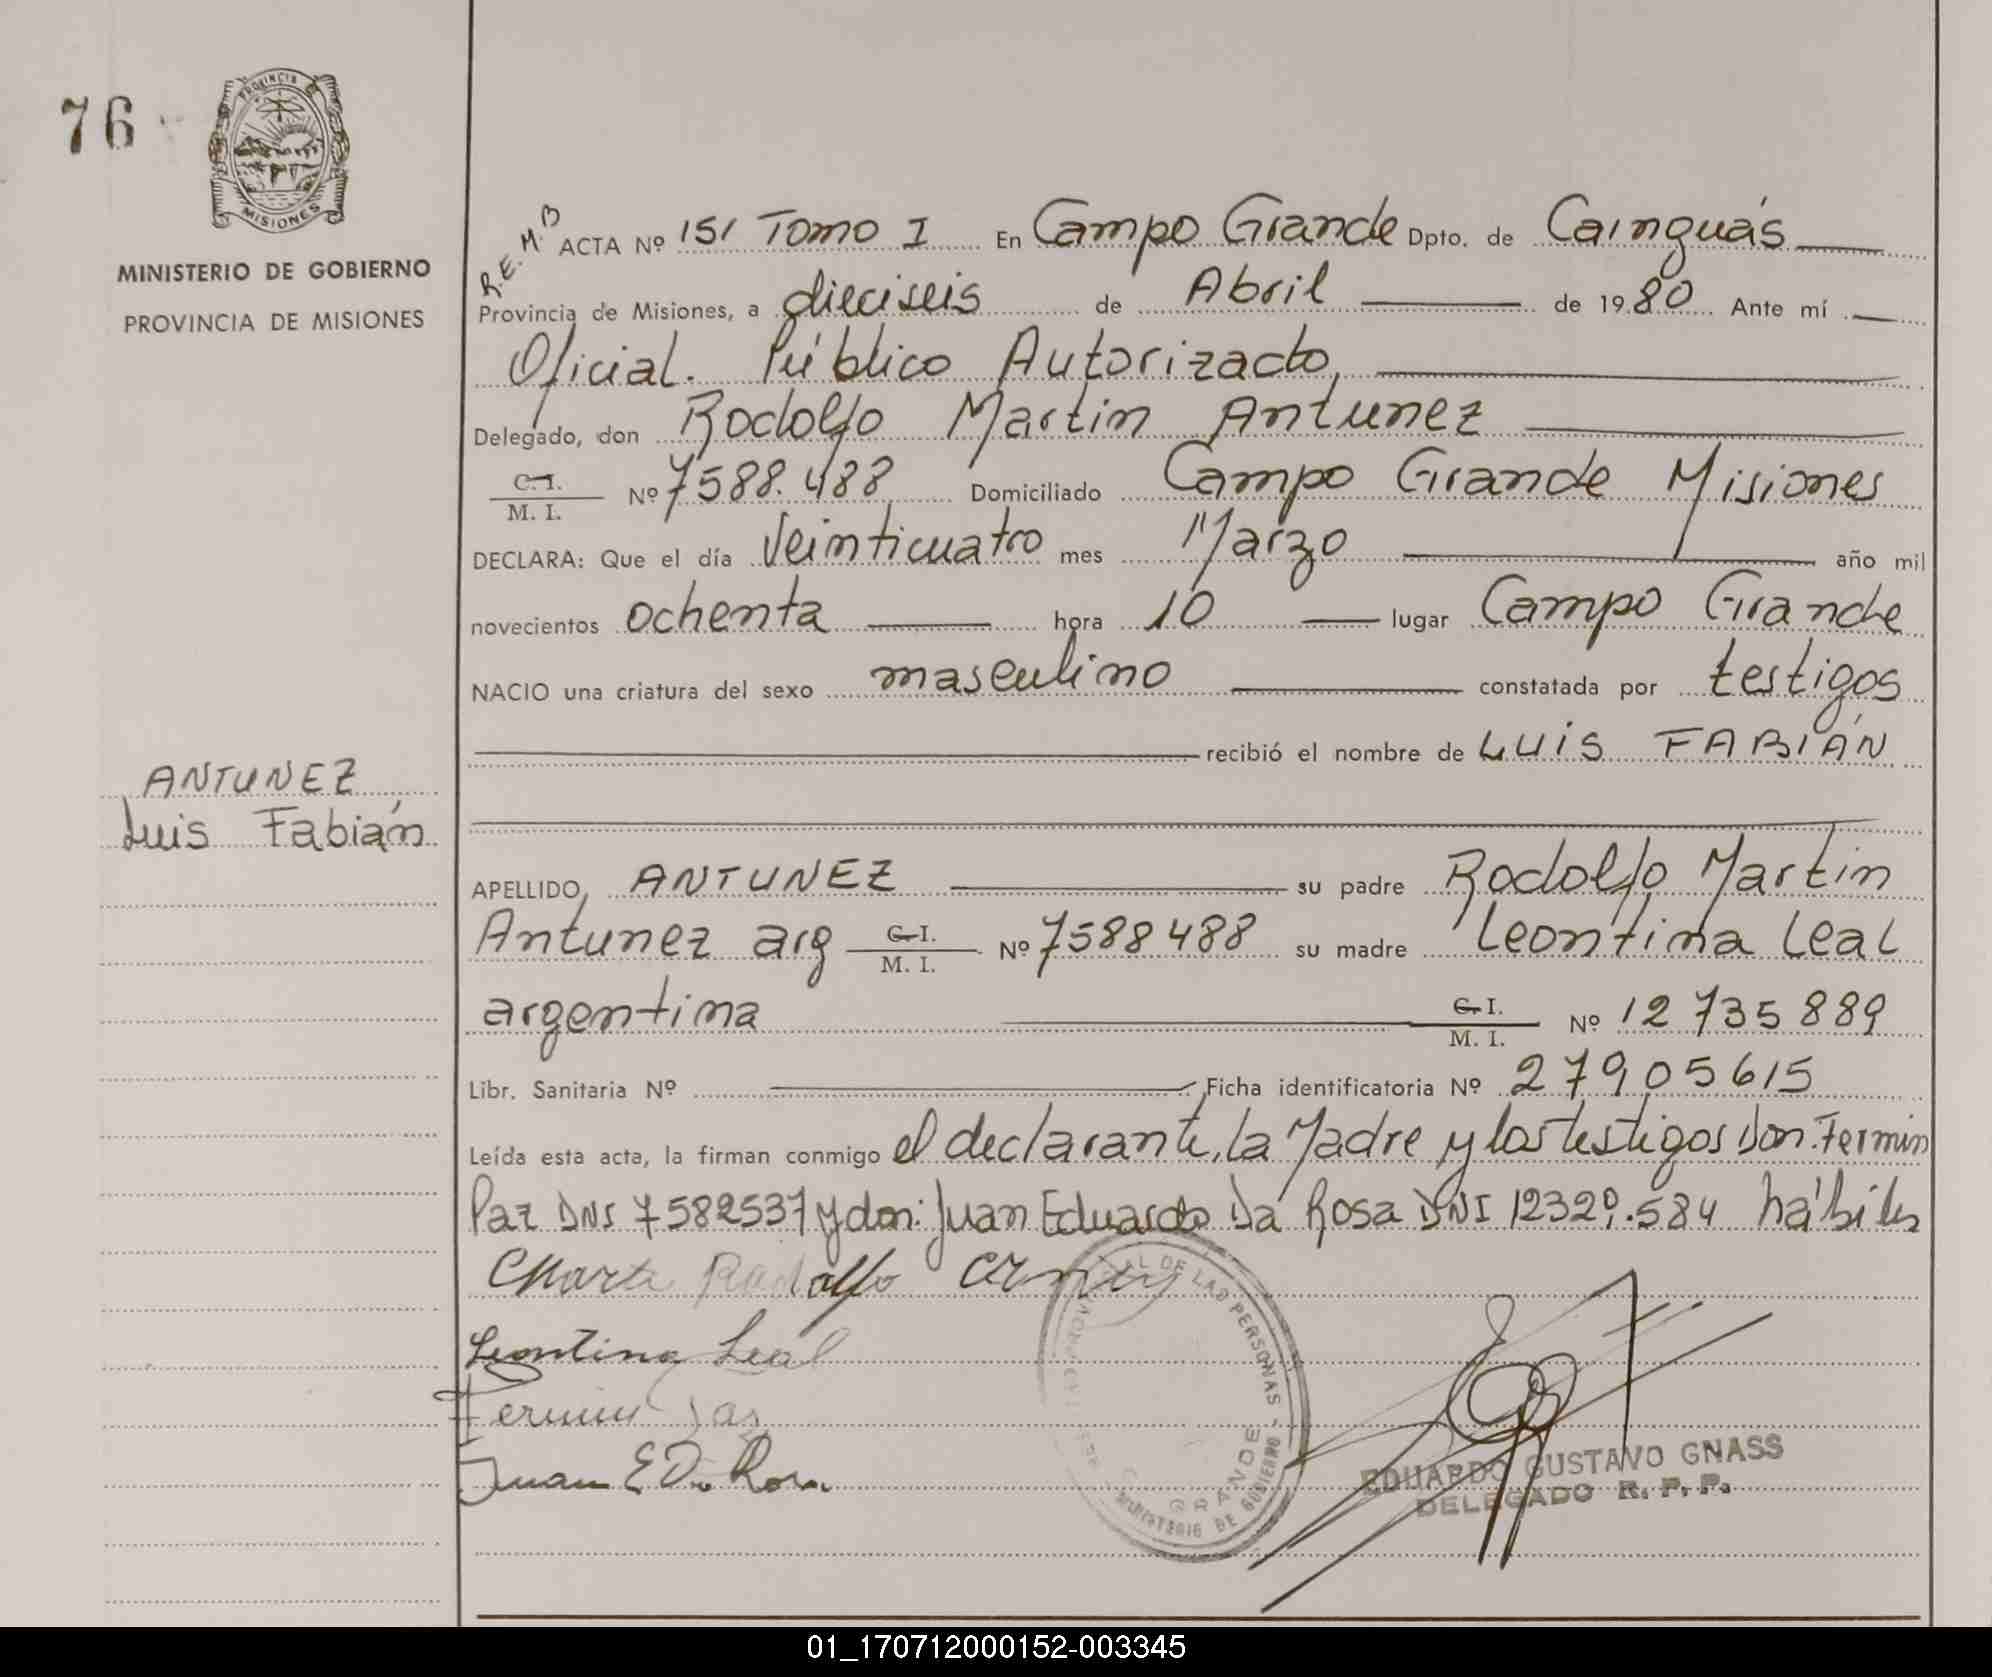 76
PROVINCIA
MISIONES
MINISTERIO DE GOBIERNO
PROVINCIA DE MISIONES
R.E.M.B
ACTA Nº 151 Tomo I En Campo Grande Dpto. de Cainguás
Provincia de Misiones, a dieciseis de Abril de 1980 Ante mí
Oficial. Público Autorizado,
Delegado, don Rodolfo Martin Antunez
C.I.
M. I. Nº 7588.488 Domiciliado Campo Grande Misiones
DECLARA: Que el día Veinticuatro mes Marzo año mil
novecientos ochenta hora 10 lugar Campo Grande
NACIO una criatura del sexo masculino constatada por testigos
recibió el nombre de LUIS FABIÁN
ANTUNEZ,
Luis Fabián
APELLIDO, ANTUNEZ su padre Rodolfo Martin
Antunez arg C.I. M. I. Nº 7588488 su madre Leontina Leal
argentina C.I. M. I. Nº 12735889
Libr. Sanitaria Nº Ficha identificatoria Nº 27905615
Leída esta acta, la firman conmigo el declarante, la Madre y los testigos Don. Fermin
Paz DNI 7582537 y don: Juan Eduardo Da Rosa DNI 12320.584 hábiles
Rodolfo
Leontina Leal
Fermin Paz
Juan E Da Rosa
DE LAS PERSONAS
GRANDE
MINISTERIO DE GOBIERNO
EDUARDO GUSTAVO GNASS
DELEGADO R. P. P.
01_170712000152-003345